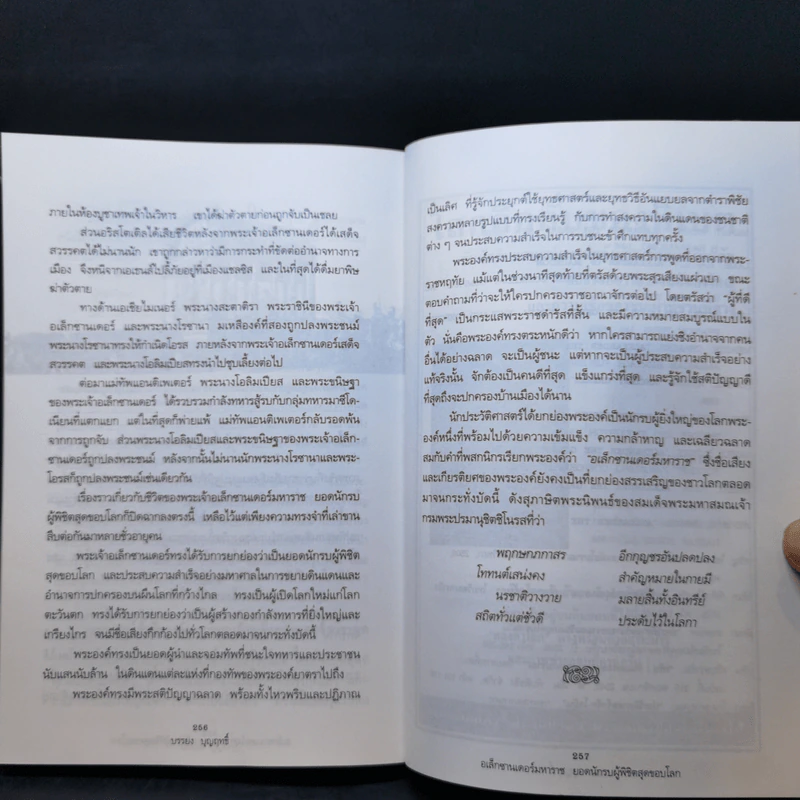 ภายในห้องบูชาเทพเจ้าในวิหาร เขาได้ฆ่าตัวตายก่อนถูกจับเป็นเชลย
ส่วนอริสโตเติลได้เสียชีวิตหลังจากพระเจ้าอเล็กซานเดอร์ได้เสด็จ
สวรรคตได้ไม่นานนัก เขาถูกกล่าวหาว่ามีการกระทำที่ขัดต่ออำนาจทางการ
เมือง จึงหนีจากเอเธนส์ไปลี้ภัยอยู่ที่เมืองแชลซิส และในที่สุดได้ดื่มยาพิษ
ฆ่าตัวตาย
ทางด้านเอเชียไมเนอร์ พระนางสะตาติรา พระราชินีของพระเจ้า
อเล็กซานเดอร์ และพระนางโรซานา มเหสีองค์ที่สองถูกปลงพระชนม์
พระนางโรซานาทรงให้กำเนิดโอรส ภายหลังจากพระเจ้าอเล็กซานเดอร์เสด็จ
สวรรคต และพระนางโอลิมเปียสทรงนำไปชุบเลี้ยงต่อไป
ต่อมาแม่ทัพแอนติเพเตอร์ พระนางโอลิมเปียส และพระขนิษฐา
ของพระเจ้าอเล็กซานเดอร์ ได้รวบรวมกำลังทหารสู้รบกับกลุ่มทหารมาซิโด-
เนียนที่แตกแยก แต่ในที่สุดก็พ่ายแพ้ แม่ทัพแอนติเพเตอร์กลับรอดพ้น
จากการถูกจับ ส่วนพระนางโอลิมเปียสและพระขนิษฐาของพระเจ้าอเล็ก-
ซานเดอร์ถูกปลงพระชนม์ หลังจากนั้นไม่นานนักพระนางโรซานาและพระ-
โอรสก็ถูกปลงพระชนม์เช่นเดียวกัน
เรื่องราวเกี่ยวกับชีวิตของพระเจ้าอเล็กซานเดอร์มหาราช ยอดนักรบ
ผู้พิชิตสุดขอบโลกก็ปิดฉากลงตรงนี้ เหลือไว้แต่เพียงความทรงจำที่เล่าขาน
สืบต่อกันมาหลายชั่วอายุคน
พระเจ้าอเล็กซานเดอร์ทรงได้รับการยกย่องว่าเป็นยอดนักรบผู้พิชิต
สุดขอบโลก และประสบความสำเร็จอย่างมหาศาลในการขยายดินแดนและ
อำนาจการปกครองบนผืนโลกที่กว้างไกล ทรงเป็นผู้เปิดโลกใหม่แก่โลก
ตะวันตก ทรงได้รับการยกย่องว่าเป็นผู้สร้างกองกำลังทหารที่ยิ่งใหญ่และ
เกรียงไกร จนมีชื่อเสียงกึกก้องไปทั่วโลกตลอดมาจนกระทั่งบัดนี้
พระองค์ทรงเป็นยอดผู้นำและจอมทัพที่ชนะใจทหารและประชาชน
นับแสนนับล้าน ในดินแดนแต่ละแห่งที่กองทัพของพระองค์ยาตราไปถึง
พระองค์ทรงมีพระสติปัญญาฉลาด พร้อมทั้งไหวพริบและปฏิภาณ
256
บรรยง บุญฤทธิ์
เป็นเลิศ ที่รู้จักประยุกต์ใช้ยุทธศาสตร์และยุทธวิธีอันแยบยลจากตำราพิชัย
สงครามหลายรูปแบบที่ทรงเรียนรู้ กับการทำสงครามในดินแดนของชนชาติ
ต่าง ๆ จนประสบความสำเร็จในการรบชนะข้าศึกแทบทุกครั้ง
พระองค์ทรงประสบความสำเร็จในยุทธศาสตร์การพูดที่ออกจากพระ-
ราชหฤทัย แม้แต่ในช่วงนาทีสุดท้ายที่ตรัสด้วยพระสุรเสียงแผ่วเบา ขณะ
ตอบคำถามที่ว่าจะให้ใครปกครองราชอาณาจักรต่อไป โดยตรัสว่า "ผู้ที่ดี
ที่สุด" เป็นกระแสพระราชดำรัสที่สั้น และมีความหมายสมบูรณ์แบบใน
ตัว นั่นคือพระองค์ทรงตระหนักดีว่า หากใครสามารถแย่งชิงอำนาจจากคน
อื่นได้อย่างฉลาด จะเป็นผู้ชนะ แต่หากจะเป็นผู้ประสบความสำเร็จอย่าง
แท้จริงนั้น จักต้องเป็นคนดีที่สุด แข็งแกร่งที่สุด และรู้จักใช้สติปัญญาดี
ที่สุดถึงจะปกครองบ้านเมืองได้นาน
นักประวัติศาสตร์ได้ยกย่องพระองค์เป็นนักรบผู้ยิ่งใหญ่ของโลกพระ-
องค์หนึ่งที่พร้อมไปด้วยความเข้มแข็ง ความกล้าหาญ และเฉลียวฉลาด
สมกับคำที่พสกนิกรเรียกพระองค์ว่า "อเล็กซานเดอร์มหาราช" ซึ่งชื่อเสียง
และเกียรติยศของพระองค์ยังคงเป็นที่ยกย่องสรรเสริญของชาวโลกตลอด
มาจนกระทั่งบัดนี้ ดังสุภาษิตพระนิพนธ์ของสมเด็จพระมหาสมณเจ้า
กรมพระปรมานุชิตชิโนรสที่ว่า
พฤกษภกาสร อีกกุญชรอันปลดปลง
โททนต์เสน่งคง สำคัญหมายในกายมี
นรชาติวางวาย มลายสิ้นทั้งอินทรีย์
สถิตทั่วแต่ชั่วดี ประดับไว้ในโลกา
257
อเล็กซานเดอร์มหาราช ยอดนักรบผู้พิชิตสุดขอบโลก